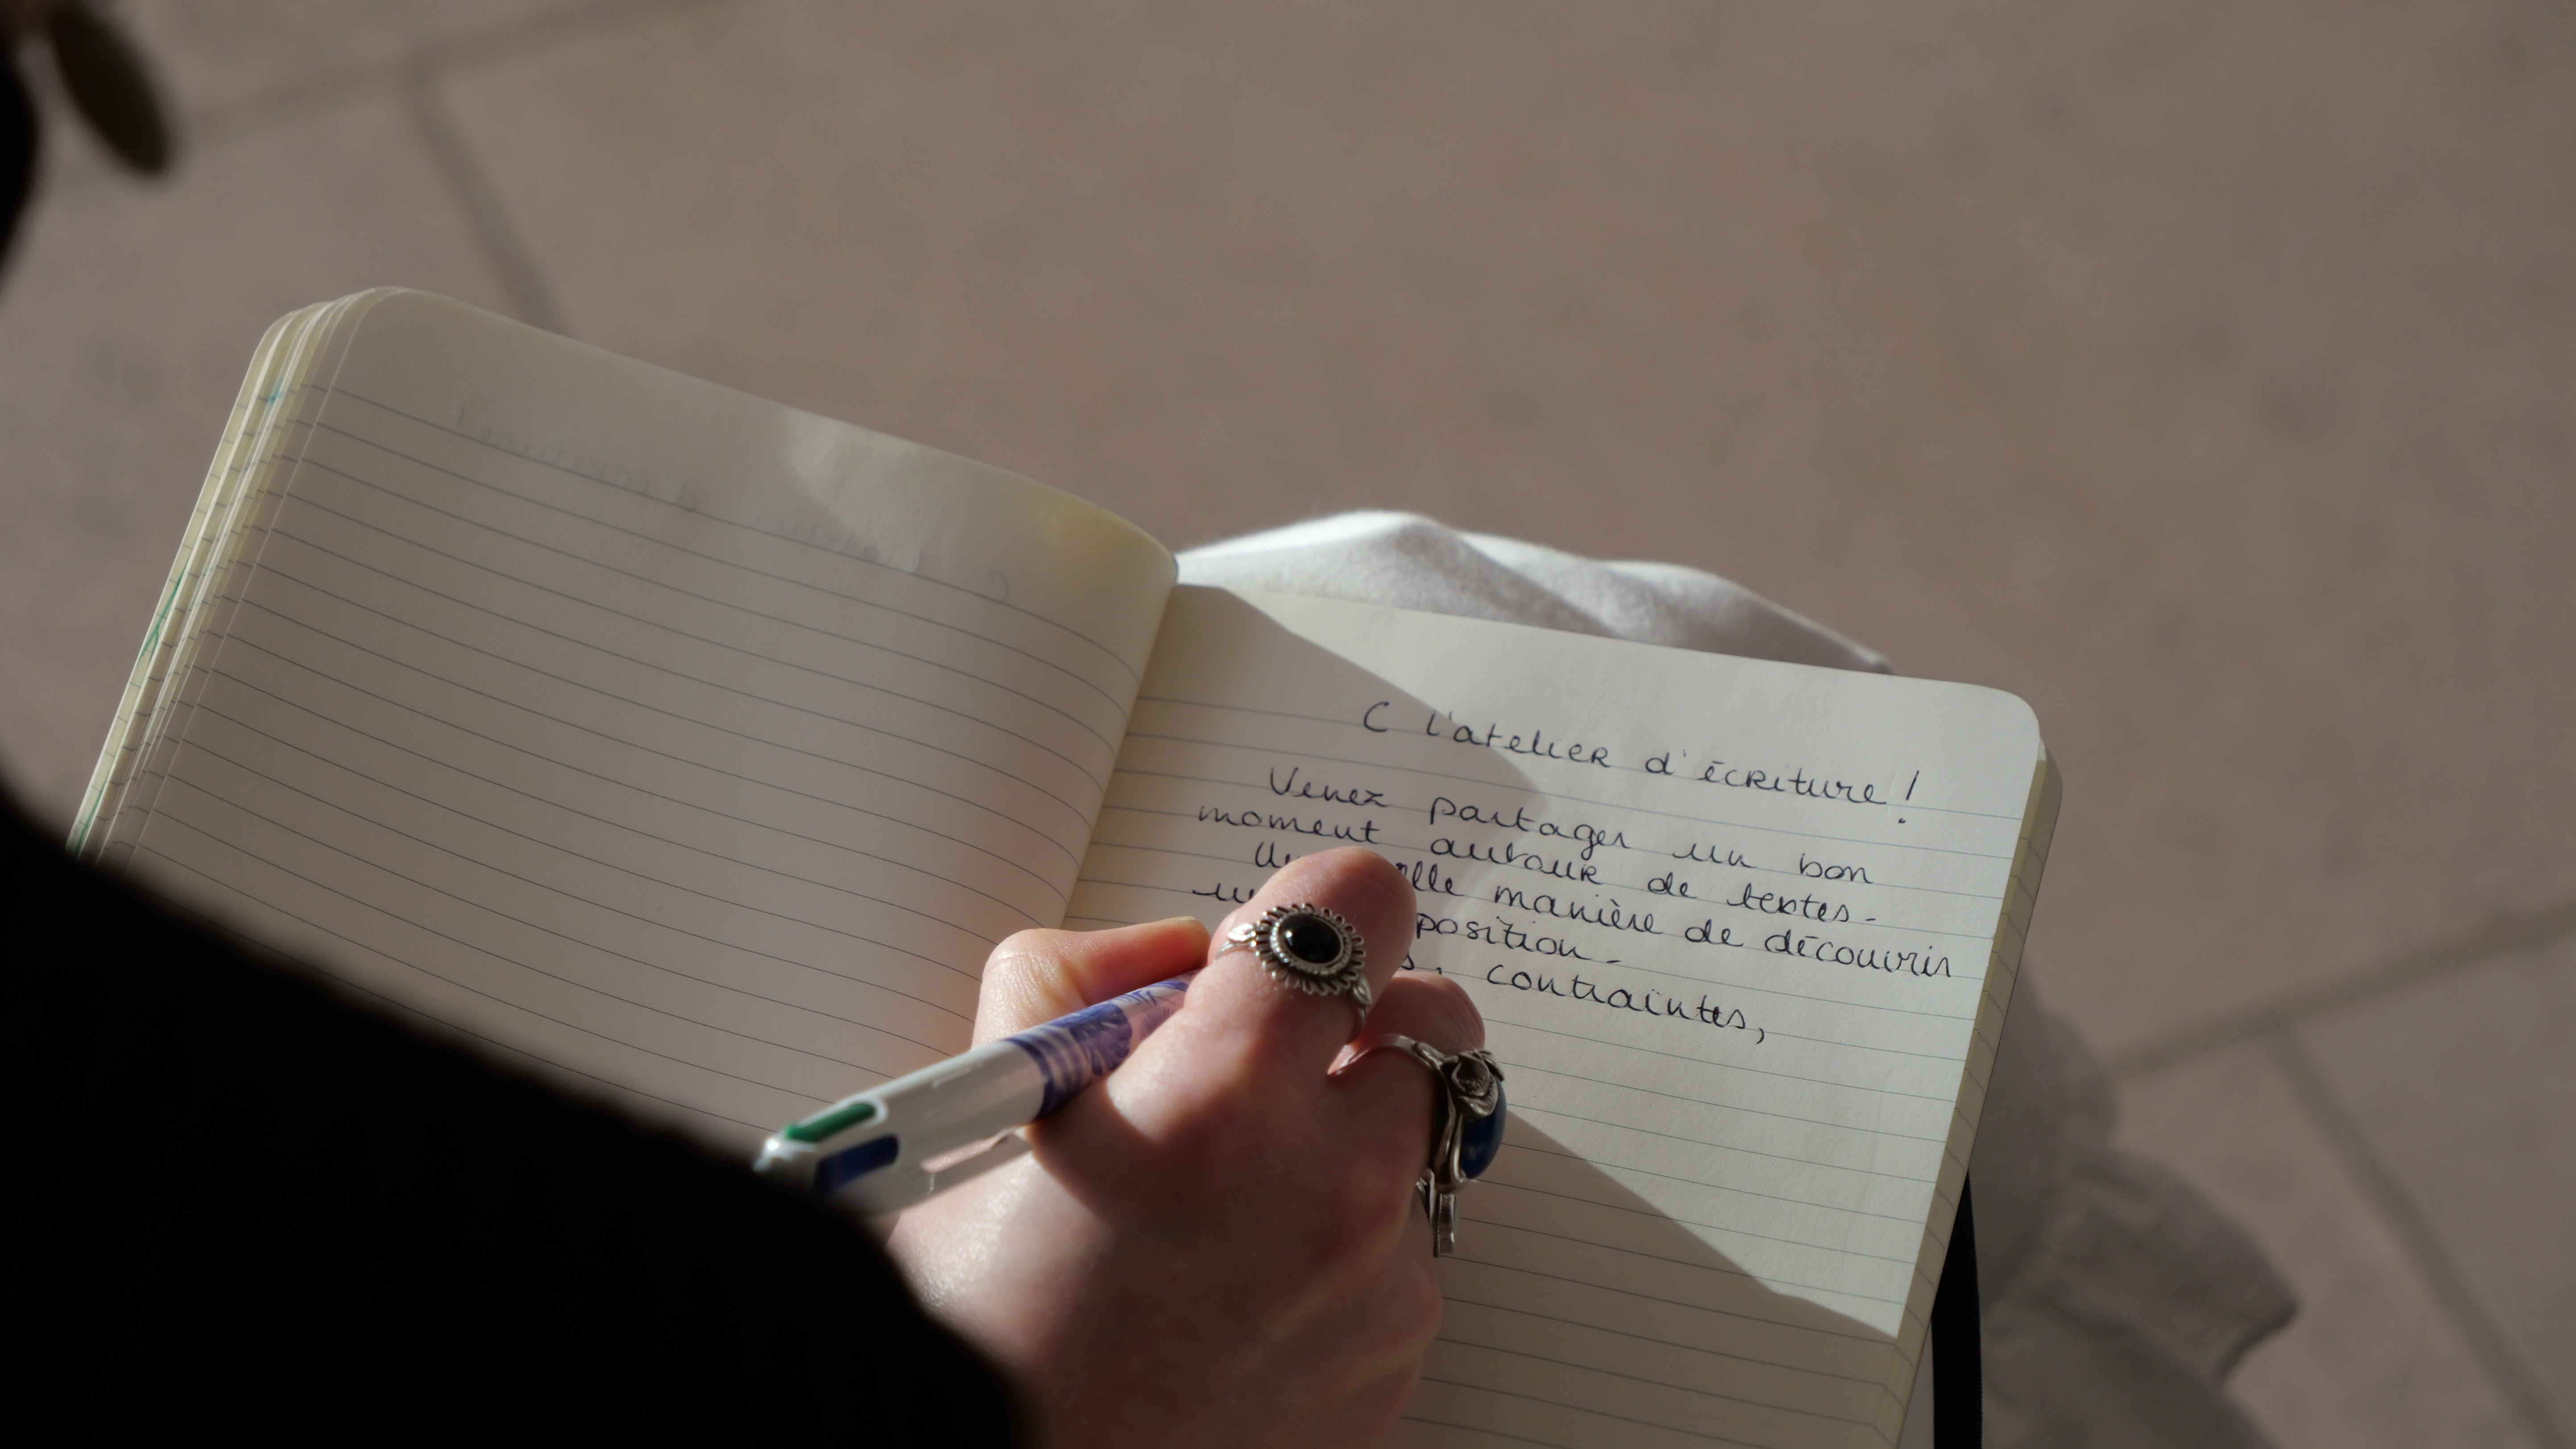 C l'atelier d'écriture !
Venez partager un bon
moment autour de textes.
manière de découvrir
position.
contraintes,